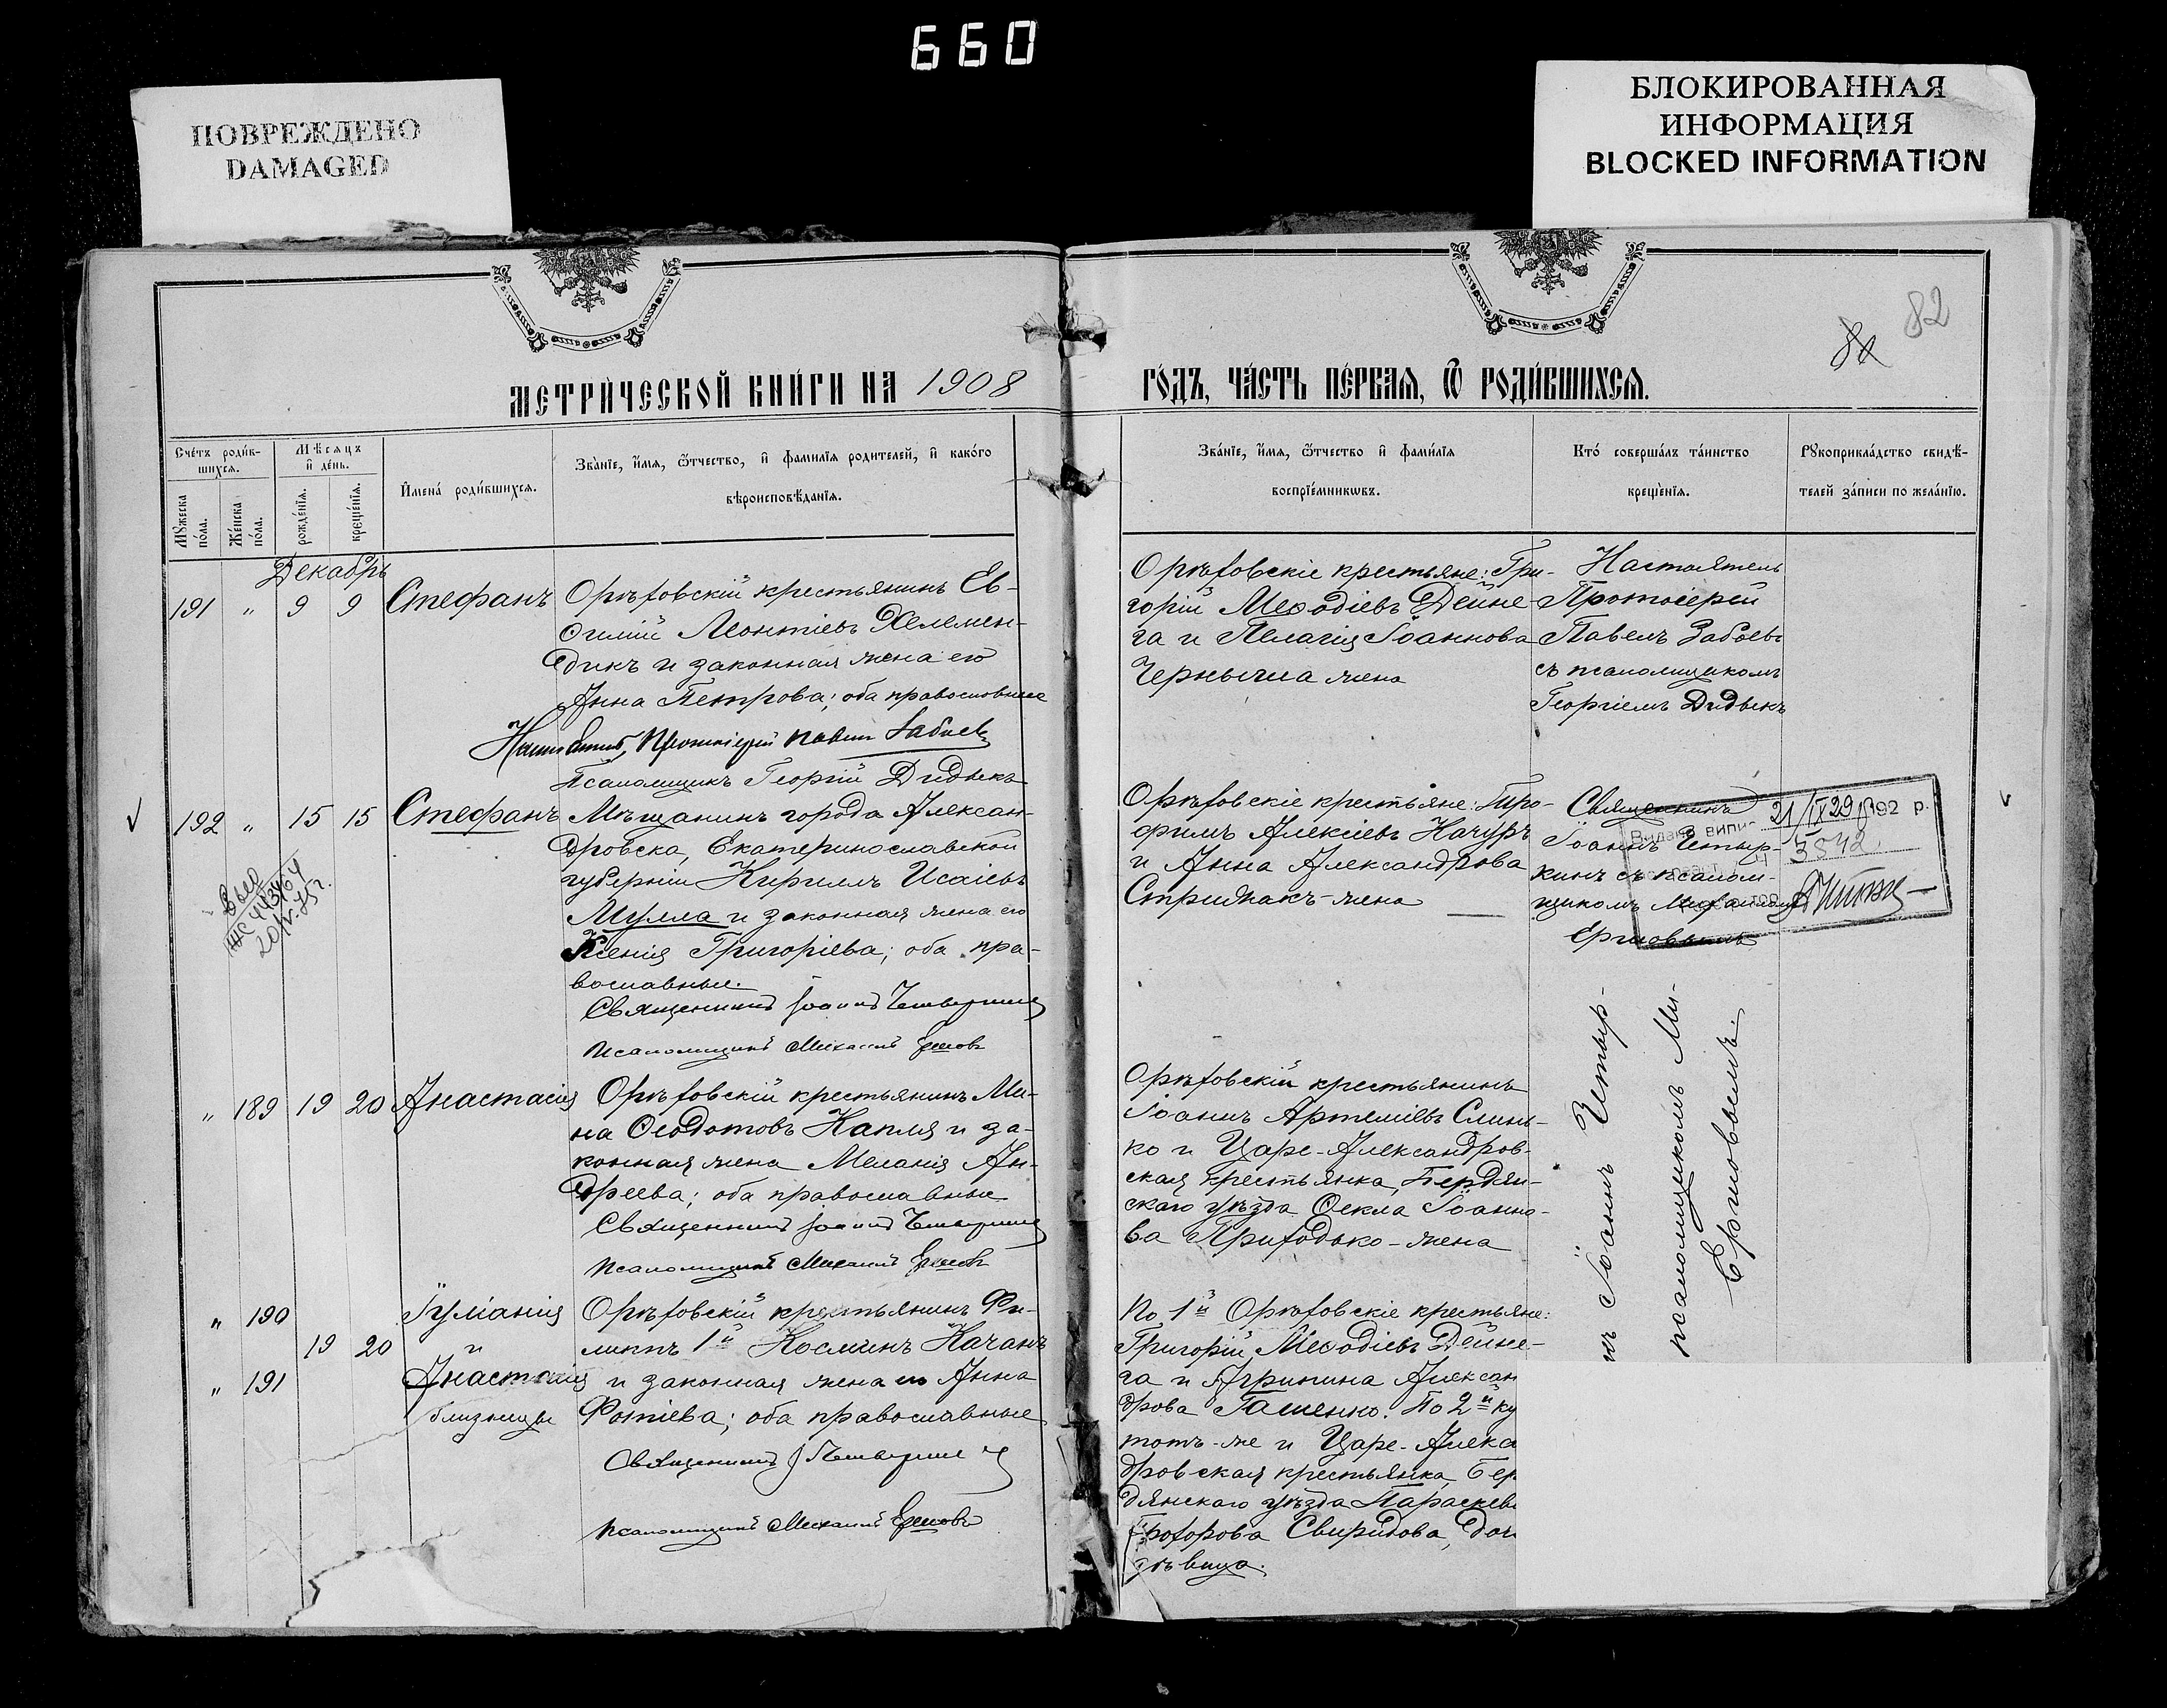 660
ПОВРЕЖДЕНО
DAMAGED
БЛОКИРОВАННАЯ
ИНФОРМАЦИЯ
BLOCKED INFORMATION
82
МЕТРИ́ЧЕСКОЙ КНИ́ГИ НА 1908
ГО́ДЪ, ЧА́СТЬ ПЕ́РВАЯ, Ѿ РОДИ́ВШИХСЯ.
Сче́тъ роди́в-
шихся.
Мꙋжеска по́ла.
Же́нска по́ла.
Мѣ́сяцъ
и де́нь.
рожде́нїя.
креще́нїя.
Имена́ роди́вшихся.
Зва́нїе, и́мя, ѻ́тчество, и фами́лїя родителей, и како́го
вѣроисповѣ́данїя.
Зва́нїе, и́мя, ѻ́тчество и фами́лїя
воспрїе́мникωвъ.
Кто́ соверша́лъ та́инство
креще́нїя.
Рꙋкоприкла́дство свидѣ́-
телей за́писи по жела́нїю.
Декабрь
191 " 9 9 Стефанъ
Орѣховскій крестьянинъ Ев-
ѳимій Леонтіевъ Желемен-
дикъ и законная жена его
Анна Петрова; оба православные
Настоятель, Протоіерей Павелъ Забоев
Псаломщикъ Георгій Дидыкъ
Орѣховскіе крестьяне: Гри-
горій Меѳодіевъ Дейне-
га и Пелагія Іоаннова
Черныша жена
Настоятель
Протоіерей
Павелъ Забоевъ
съ псаломщикомъ
Георгіемъ Дидыкъ
192 " 15 15 Стефанъ
Мѣщанинъ города Алексан-
дровска, Екатеринославской
губерніи Кириллъ Исаіевъ
Мулла и законная жена его
Ксенія Григоріева; оба пра-
вославные.
Священникъ Іоаннъ
Псаломщикъ Михаилъ
20/V-75г.
Орѣховскіе крестьяне: Тро-
фимъ Алексіевъ Качуръ
и Анна Александрова
Стрижакъ-жена
Священникъ
Іоаннъ Четыр-
кинъ съ псалом-
щикомъ Михаиломъ
21/IX 29 192 р.
3542
" 189 19 20 Анастасія
Орѣховскій крестьянинъ Ми-
на Ѳеодотовъ Капля и за-
конная жена Меланія Ан-
дреева; оба православные
Священникъ Іоаннъ
Псаломщикъ Михаилъ
Орѣховскій крестьянинъ
Іоаннъ Артеміевъ Слинь-
ко и Царе-Александров-
ская крестьянка, Бердян-
скаго уѣзда Ѳекла Іоанно-
ва Приходько-жена
къ Іоаннъ Четыр-
псаломщикомъ Ми-
" 190 Іуліанія
19 20 и
" 191 Анастасія
близнецы
Орѣховскій крестьянинъ Фи-
липпъ 1й Косминъ Качанъ
и законная жена его Анна
Фотіева; оба православные
Священникъ
Псаломщикъ Михаилъ
По 1й Орѣховскіе крестьяне:
Григорій Меѳодіевъ Дейне-
га и Агрипина Алексан
дрова Гашенко. По 2й ку
тотъ-же и Царе-Алекса
дровская крестьянка, Бер
дянскаго уѣзда Параскева
Прохорова Свиридова, доч
дѣвица.